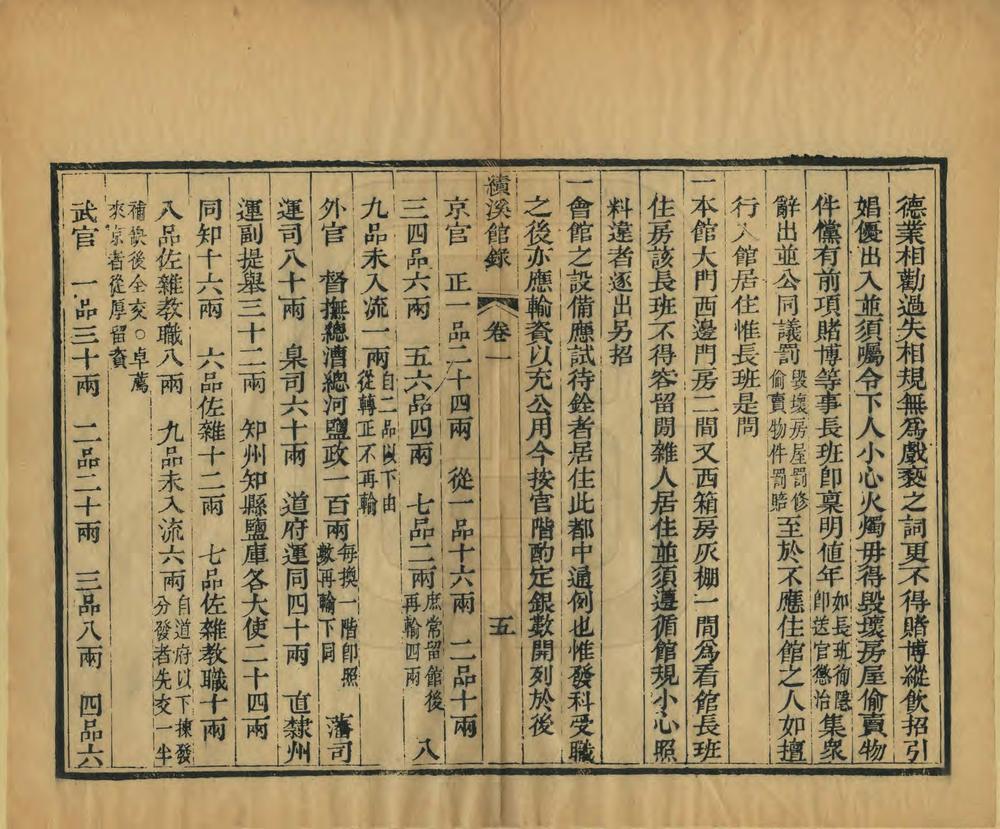 德業相勸過失相規無爲戲褻之詞更不得賭博縱飲招引
娼優出入並須囑令下人小心火燭毋得毀壞房屋偷賣物
件儻有前項賭博等事長班卽稟明值年如長班徇隱卽送官懲治集衆
辭出並公同議罰毀壞房屋罰修偷賣物件罰賠至於不應住館之人如擅
行入館居住惟長班是問
一本館大門西邊門房二間又西箱房灰棚一間爲看館長班
住房該長班不得容留閒雜人居住並須遵循館規小心照
料違者逐出另招
一會館之設備應試待銓者居住此都中通例也惟發科受職
之後亦應輸資以充公用今按官階酌定銀數開列於後
績溪館錄 卷一 五
京官 正一品二十四兩 從一品十六兩 二品十兩
三四品六兩 五六品四兩 七品二兩庶常留館後再輸四兩 八
九品未入流一兩自二品以下由從轉正不再輸
外官 督撫總漕總河鹽政一百兩每換一階卽照數再輸下同 藩司
運司八十兩 臬司六十兩 道府運同四十兩 直隸州
運副提舉三十二兩 知州知縣鹽庫各大使二十四兩
同知十六兩 六品佐雜十二兩 七品佐雜教職十兩
八品佐雜教職八兩 九品未入流六兩自道府以下揀發分發者先交一半
補缺後全交○卓薦來京者從厚留資
武官 一品三十兩 二品二十兩 三品八兩 四品六